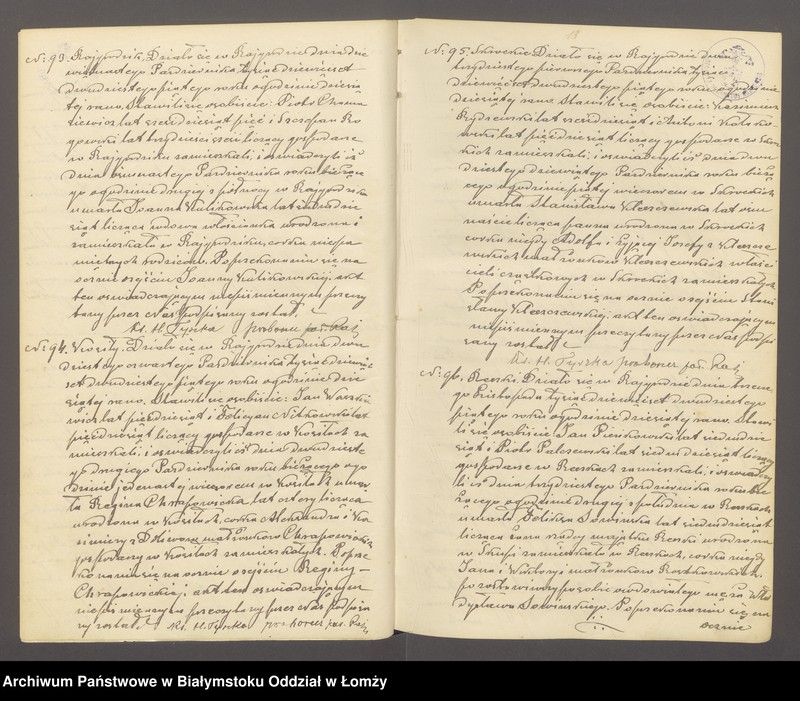 No 93. Rajgrodzik. Działo się w Rajgrodzie dnia dzie
więtnastego Października tysiąc dziewięćset
dwudziestego piątego roku o godzinie dziesią
tej rano. Stawili się osobiście: Piotr
lat sześćdziesiąt pięć i Szczepan
lat trzydzieści sześć liczący gospodarze
w Rajgrodziku zamieszkali, i oświadczyli iż
dnia Października roku bieżące
go o godzinie drugiej z północy w Rajgrodziku
umarła Joanna Kulikowska lat siedmdzie
siąt licząca wdowa włościanka urodzona i
zamieszkała w Rajgrodziku, córka niepa
miętnych rodziców. Po przekonaniu się na
ocznie o zejściu Joanny Kulikowskiej, akt
ten oświadczającym niepiśmiennym przeczy
tany przez Nas podpisany został.
Ks. H. Tyszka proboszcz par. Raj.
No 94. Kosiły. Działo się w Rajgrodzie dnia dwu
dziestego czwartego Października tysiąc dziewięć
set dwudziestego piątego roku o godzinie dzie
siątej rano. Stawili się osobiście: Jan
lat piędziesiąt i Felicyan Witkowski lat
piędziesiąt liczący gospodarze w Kosiłach za
mieszkali i oświadczyli iż dnia dwudzieste
go drugiego Października roku bieżącego o go
dzinie jedenastej wieczorem w Kosiłach umar
ła Regina Chrapowicka, lat cztery licząca
urodzona w Kosiłach, córka Aleksandra i Ka
zimiery z małżonków Chrapowickich
gospodarzy w Kosiłach zamieszkałych. Po prze
konaniu się na ocznie o zejściu Reginy
Chrapowickiej, akt ten oświadczającym
niepiśmiennym przeczytany przez Nas podpisa
ny został. Ks. H. Tyszka proboszcz par. Raj.
No 95. Skrodzkie. Działo się w Rajgrodzie dnia
trzydziestego pierwszego Października tysiąc
dziewięćset dwudziestego piątego roku o godzinie
dziesiątej rano. Stawili się osobiście: Kazimierz
lat sześćdziesiąt i Antoni
lat pięćdziesiąt liczący gospodarze w Skrodz
kich zamieszkali, i oświadczyli iż dnia dwu
dziestego dziewiątego Października roku bieżą
cego o godzinie piątej wieczorem w Skrodzkich
umarła Stanisława Kleszczewska lat ośm
naście licząca panna urodzona w Skrodzkich
córka niegdy Adolfa i żyjącej Józefy z Kleszcze
wskich małżonków Kleszczewskich właści
cieli cząstkowych w Skrodzkich zamieszkałych.
Po przekonaniu się na ocznie o zejściu Stani
sławy Kleszczewskiej, akt ten oświadczającym
niepiśmiennym przeczytany przez Nas podpi
sany został.
Ks. H. Tyszka proboszcz par. Raj.
No 96. Reszki. Działo się w Rajgrodzie dnia trzecie
go Listopada tysiąc dziewięćset dwudziestego
piątego roku o godzinie dziesiątej rano. Stawi
li się osobiście: Jan Pieńkowski lat siedmdzie
siąt i Piotr Palczewski lat siedmdziesiąt liczący
gospodarze w Reszkach zamieszkali, i oświadczy
li iż dnia trzydziestego Października roku bie
żącego o godzinie drugiej z południa w Reszkach
umarła Feliksa Sowińska lat siedmdziesiąt
licząca żona rządcy majątku Reszki urodzona
w zamieszkała w Reszkach, córka niegdy
Jana i Wiktoryi małżonków Rostkowskich,
pozostawiwszy po sobie owdowiałego męża Wła
dysława Sowińskiego. Po przekonaniu się na
ocznie
Archiwum Państwowe w Białymstoku Oddział w Łomży